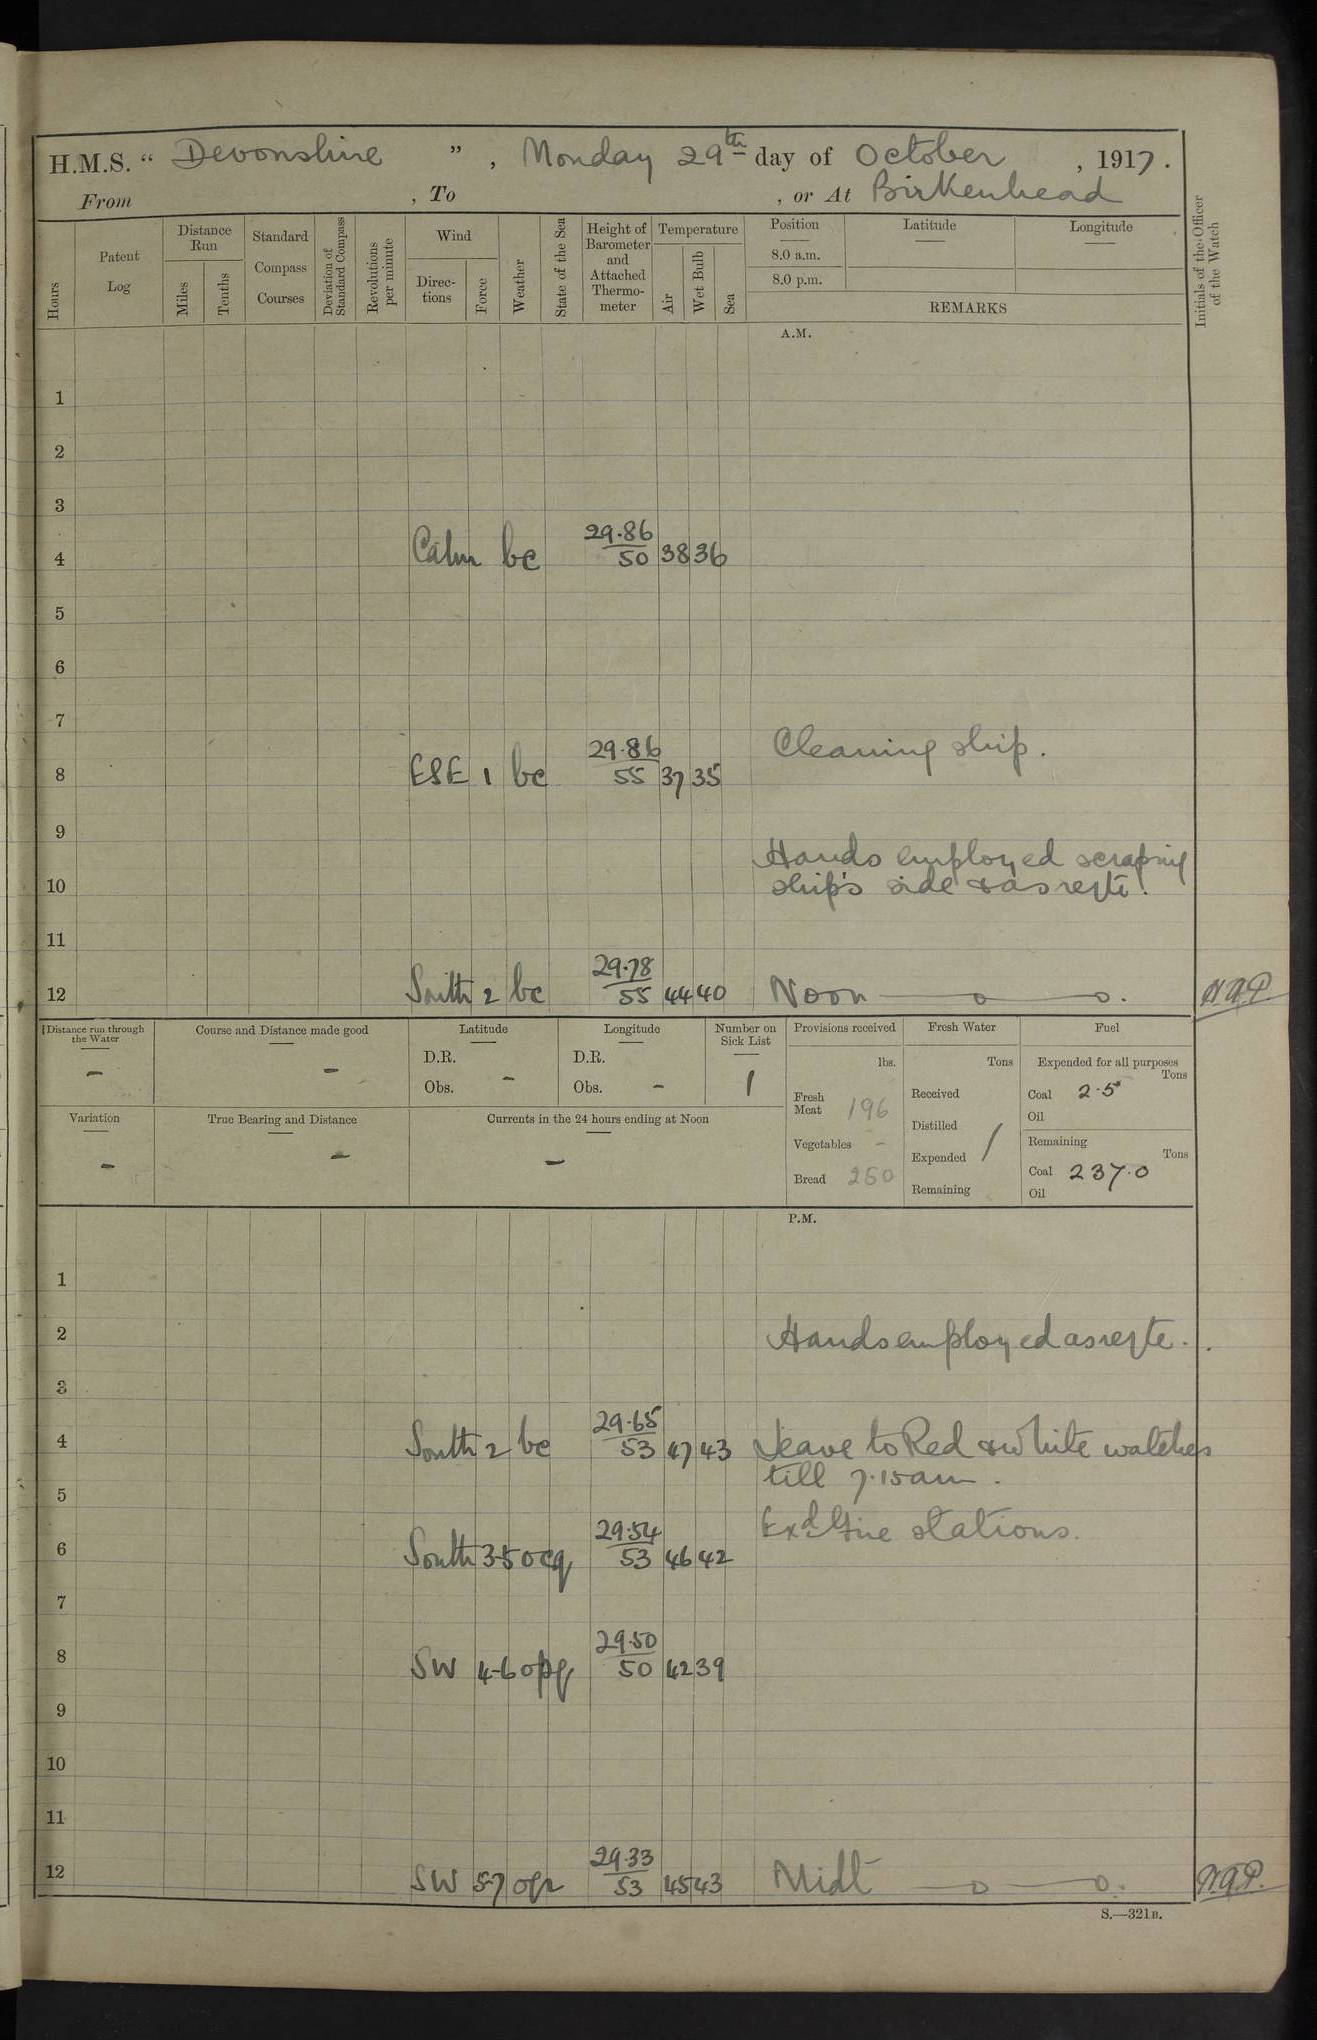 H.M.S. “ Devonshire ” , Monday 29th day of October , 1917.
From , To , or At Birkenhead
Hours
Patent Log
Distance Run
Miles
Tenths
Standard Compass Courses
Deviation of Standard Compass
Revolutions per minute
Wind
Direc-tions
Force
Weather
State of the Sea
Height of Barometer and Attached Thermo-meter
Temperature
Air
Wet Bulb
Sea
Position
8.0 a.m.
8.0 p.m.
Latitude
Longitude
REMARKS
Initials of the Officer of the Watch
A.M.
1
2
3
4 Calm bc 29.86 50 38 36
5
6
7
Cleaning ship.
8 ESE 1 bc 29.86 55 37 35
9
Hands employed scraping
10 ship's side & as reqte.
11
12 South 2 bc 29.78 55 44 40 Noon
Distance run through the Water
-
Course and Distance made good
-
Latitude
D.R.
Obs. -
Longitude
D.R.
Obs. -
Number on Sick List
1
Provisions received
lbs.
Fresh Meat 196
Vegetables -
Bread 250
Fresh Water
Tons
Received
Distilled
Expended /
Remaining
Fuel
Expended for all purposes
Tons
Coal 2.5
Oil
Remaining
Tons
Coal 237.0
Oil
Variation
-
True Bearing and Distance
-
Currents in the 24 hours ending at Noon
-
P.M.
1
2 Hands employed as reqte.
3
4 South 2 bc 29.65 53 47 43 Leave to Red & White watches
till 7.15am.
5
Exd Fire stations.
6 South 3-5 ocq 29.54 53 46 42
7
8 SW 4-6 opq 29.50 50 42 39
9
10
11
12 SW 5-7 29.33 53 45 43 Midt
S.—321B.